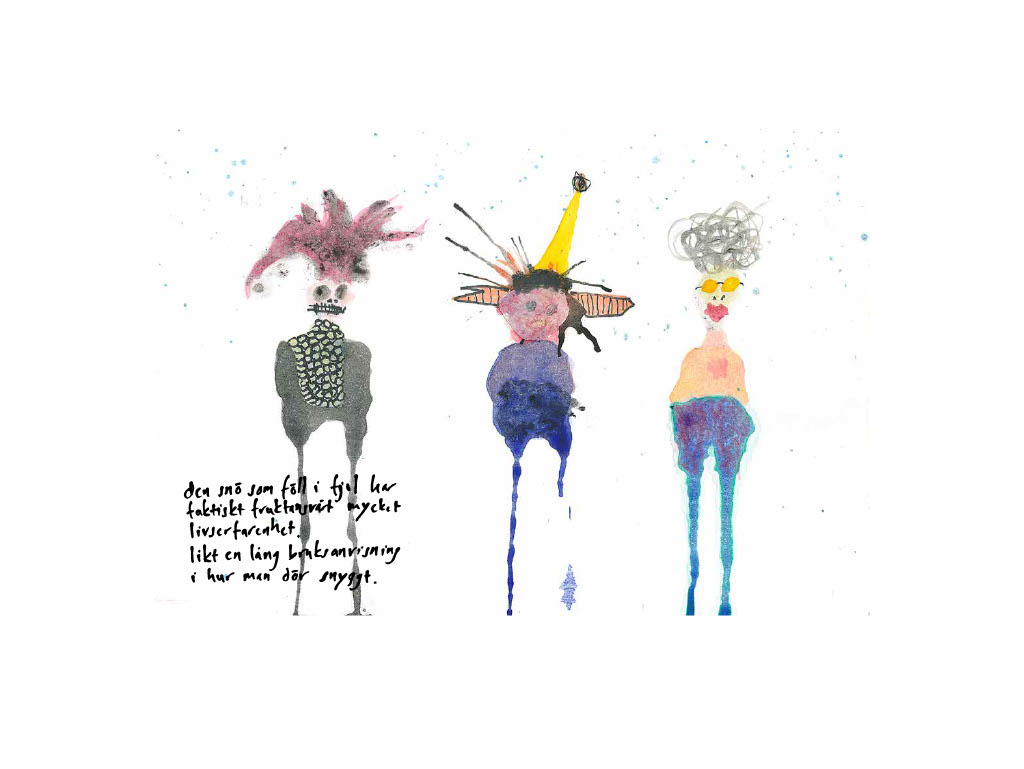 den snö som föll i fjol har
faktiskt fruktansvärt mycket
livserfarenhet.
likt en lång bruksanvisning
i hur man dör snyggt.